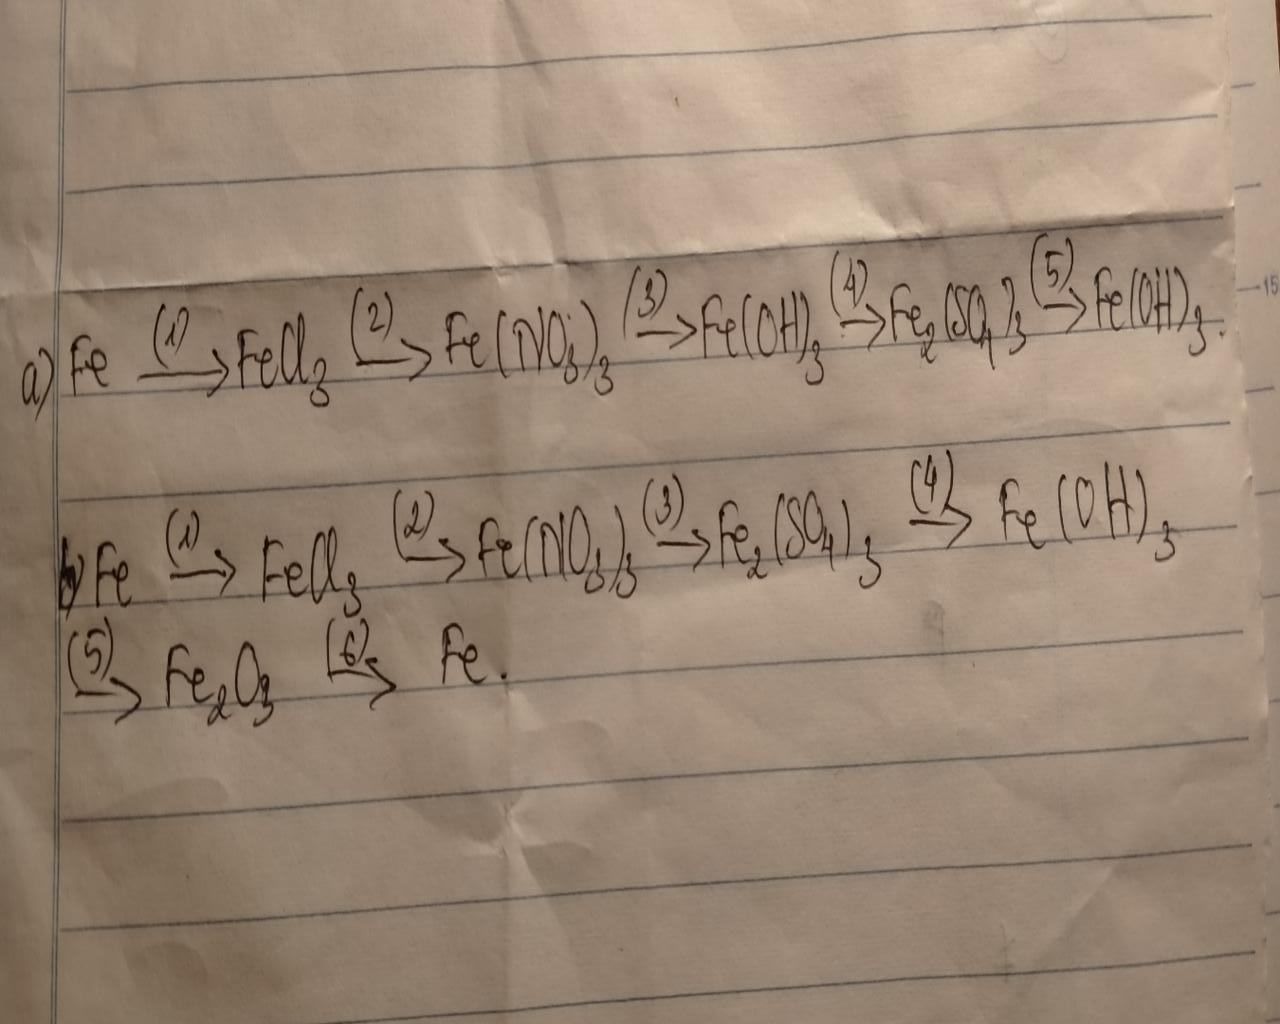 a) Fe (1)→ FeCl₃ (2)→ Fe(NO₃)₃ (3)→ Fe(OH)₃ (4)→ Fe₂(SO₄)₃ (5)→ Fe(OH)₃.
b) Fe (1)→ FeCl₃ (2)→ Fe(NO₃)₃ (3)→ Fe₂(SO₄)₃ (4)→ Fe(OH)₃
(5)→ Fe₂O₃ (6)→ Fe.
15